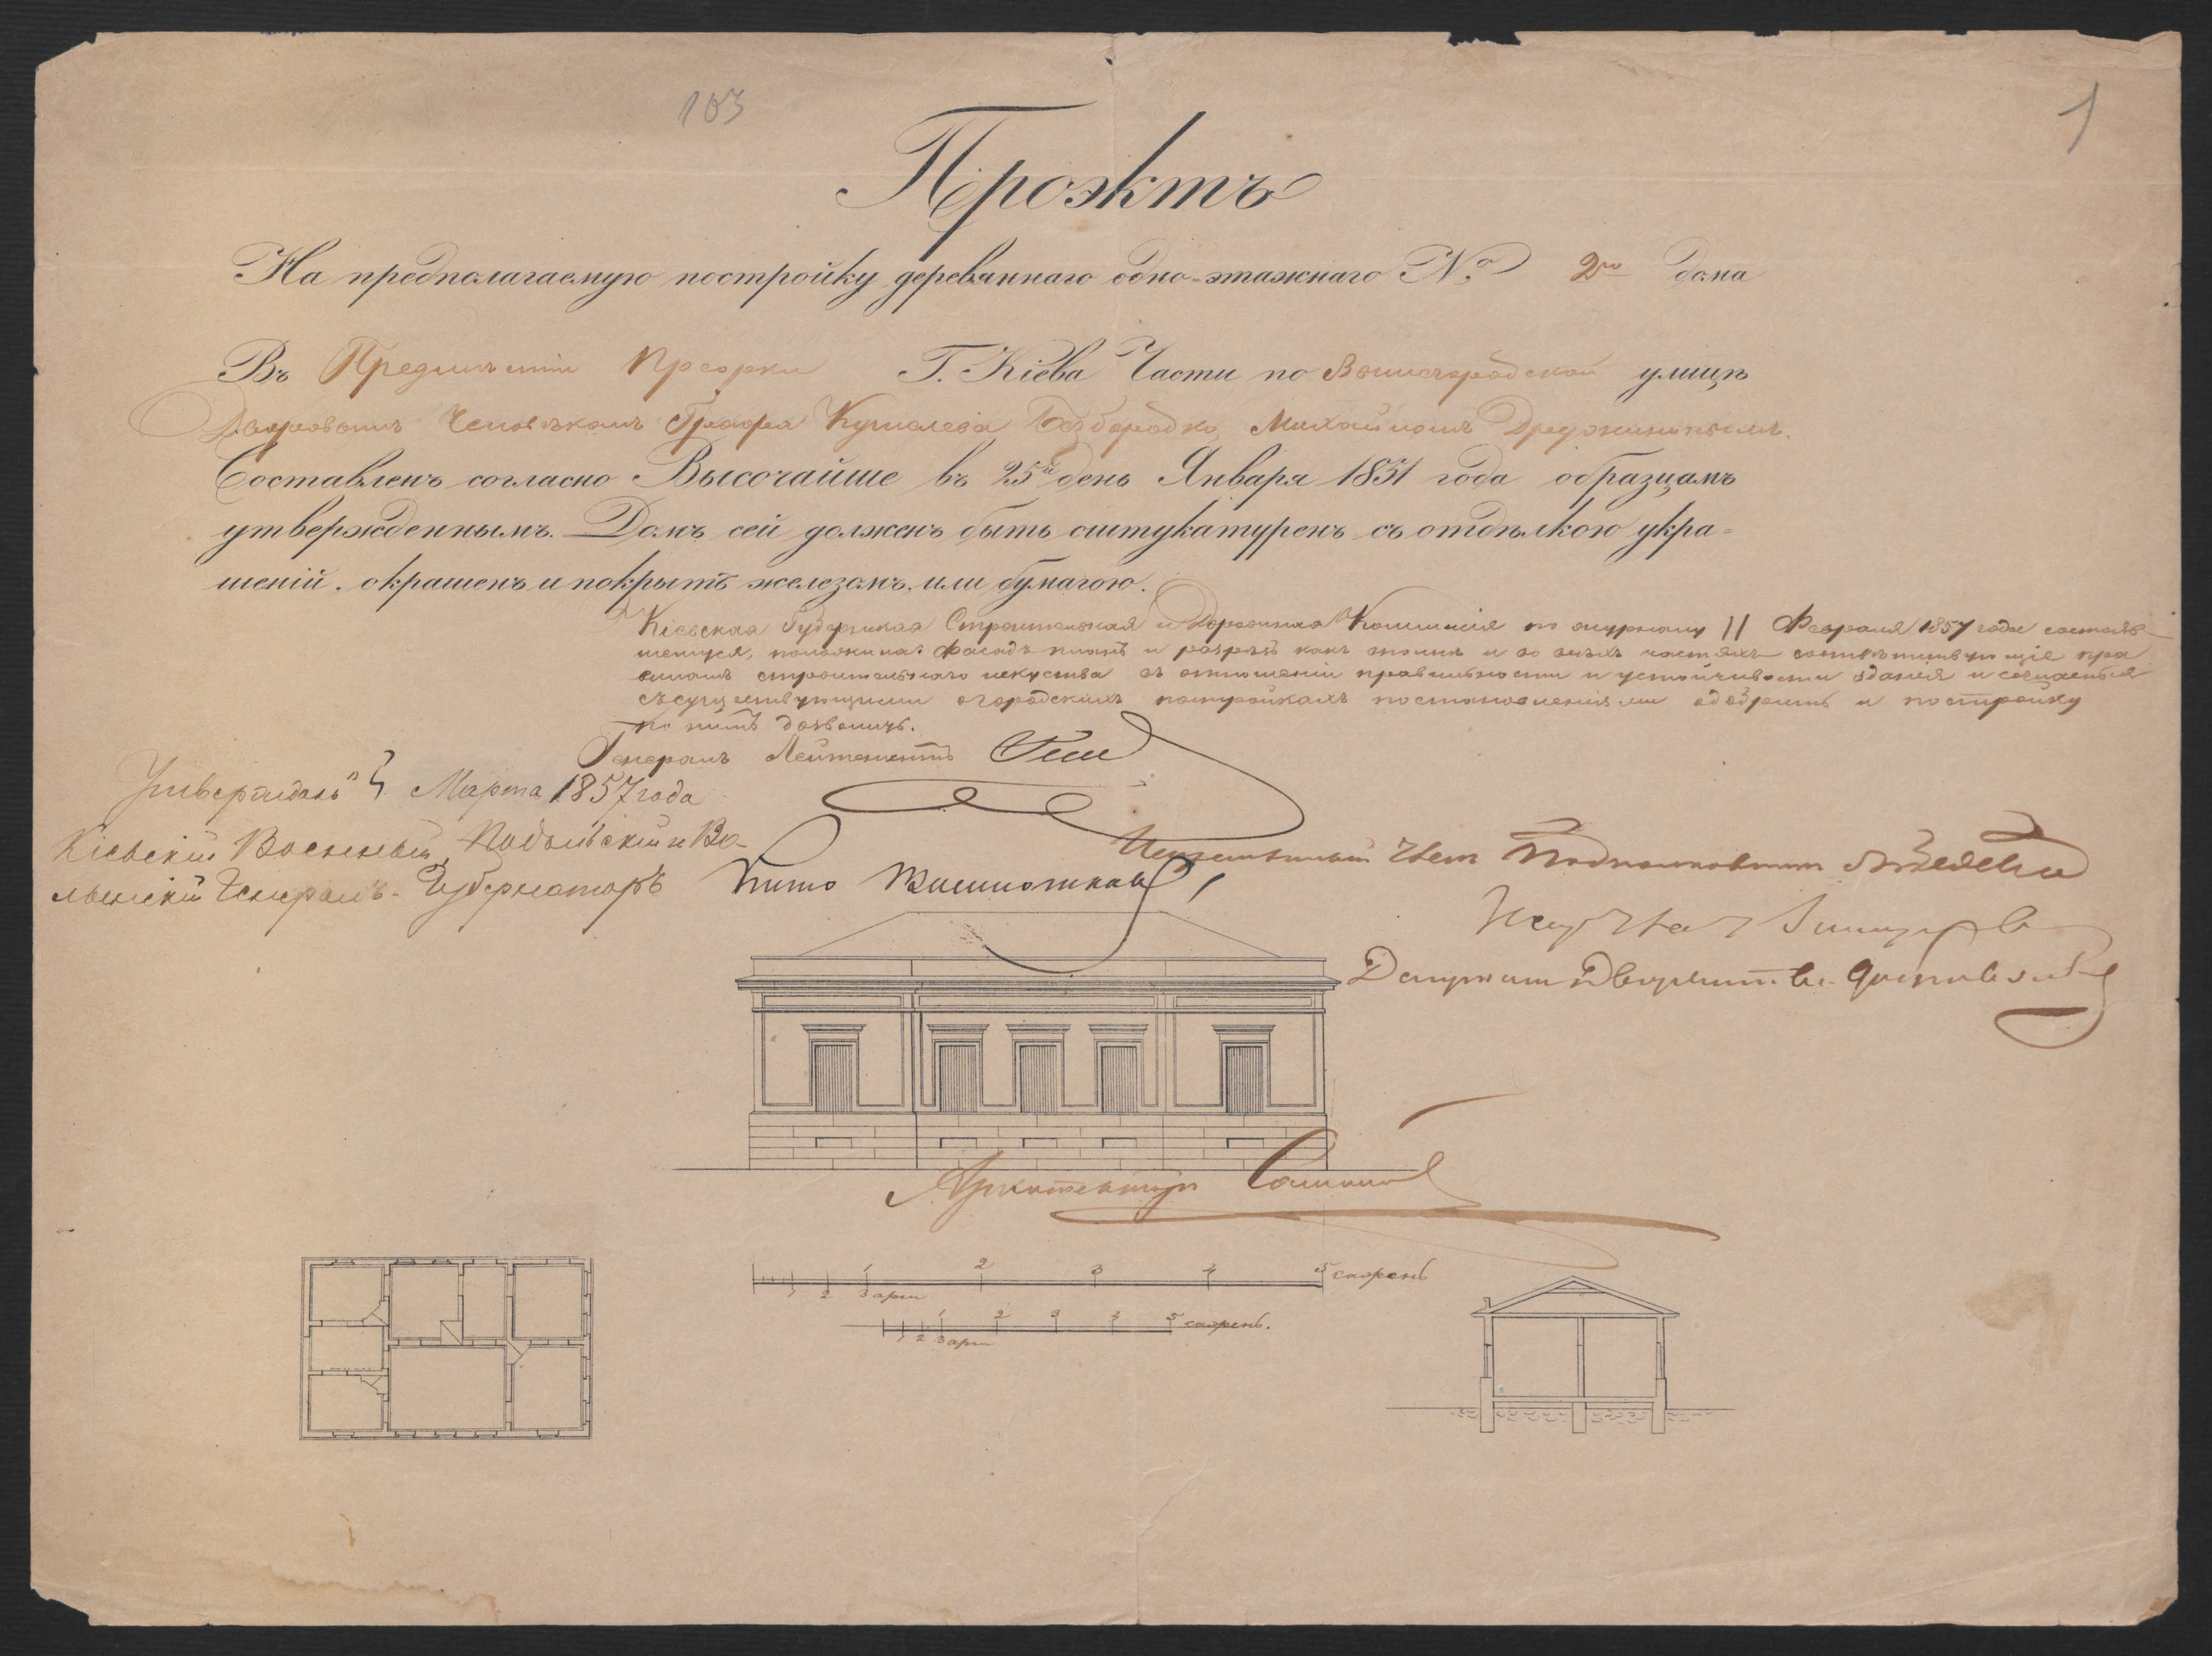 103
1
Проэктъ
На предполагаемую постройку деревяннаго одно-этажнаго №. 2го дома
Въ Предмѣстіи Преорки Г. Кіева Части по Вышегородской улицѣ
Дворовымъ Человѣкомъ Графа Кушелева Безбородко, Михаиломъ Дружининымъ.
Составленъ согласно Высочайше въ 25й день Января 1851 года образцамъ
утвержденнымъ. Домъ сей долженъ быть оштукатуренъ съ отдѣлкою укра-
шеній. окрашенъ и покрытъ железомъ. или бумагою.
Кіевская Губернская Строительная и Дорожная Коммисія по журналу 11 Февраля 1857 года состояв-
шемуся, положила: Фасадъ планъ и разрѣзъ какъ въ своихъ частяхъ соотвѣтствующіе пра
виламъ строительнаго искуства въ отношеніи правильности и устойчивости зданія и
съ существующими о городскихъ постройкахъ постановленіями одобрить и постройку
по нимъ дозволить.
Генералъ Лейтенантъ Гессе
Утверждаю 5 Марта 1857 года
Кіевскій Военный, Подольскій и Во-
лынскій Генералъ-Губернаторъ Князь Васильчиковъ
Члены Подполковникъ
Депутатъ Дворянства
Архитекторъ
1 2 3 4 5 сажень
1 2 3 арш
1 2 3 4 5 сажень.
1 2 3 арш